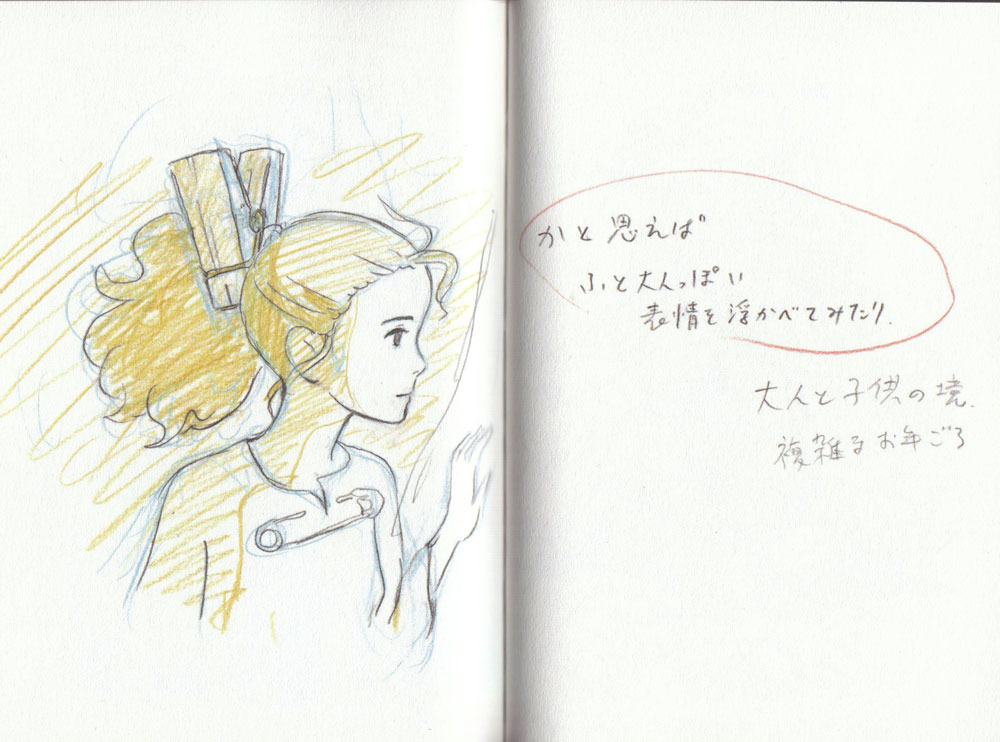 かと思えば
ふと大人っぽい
表情を浮かべてみたり.
大人と子供の境.
複雑なお年ごろ